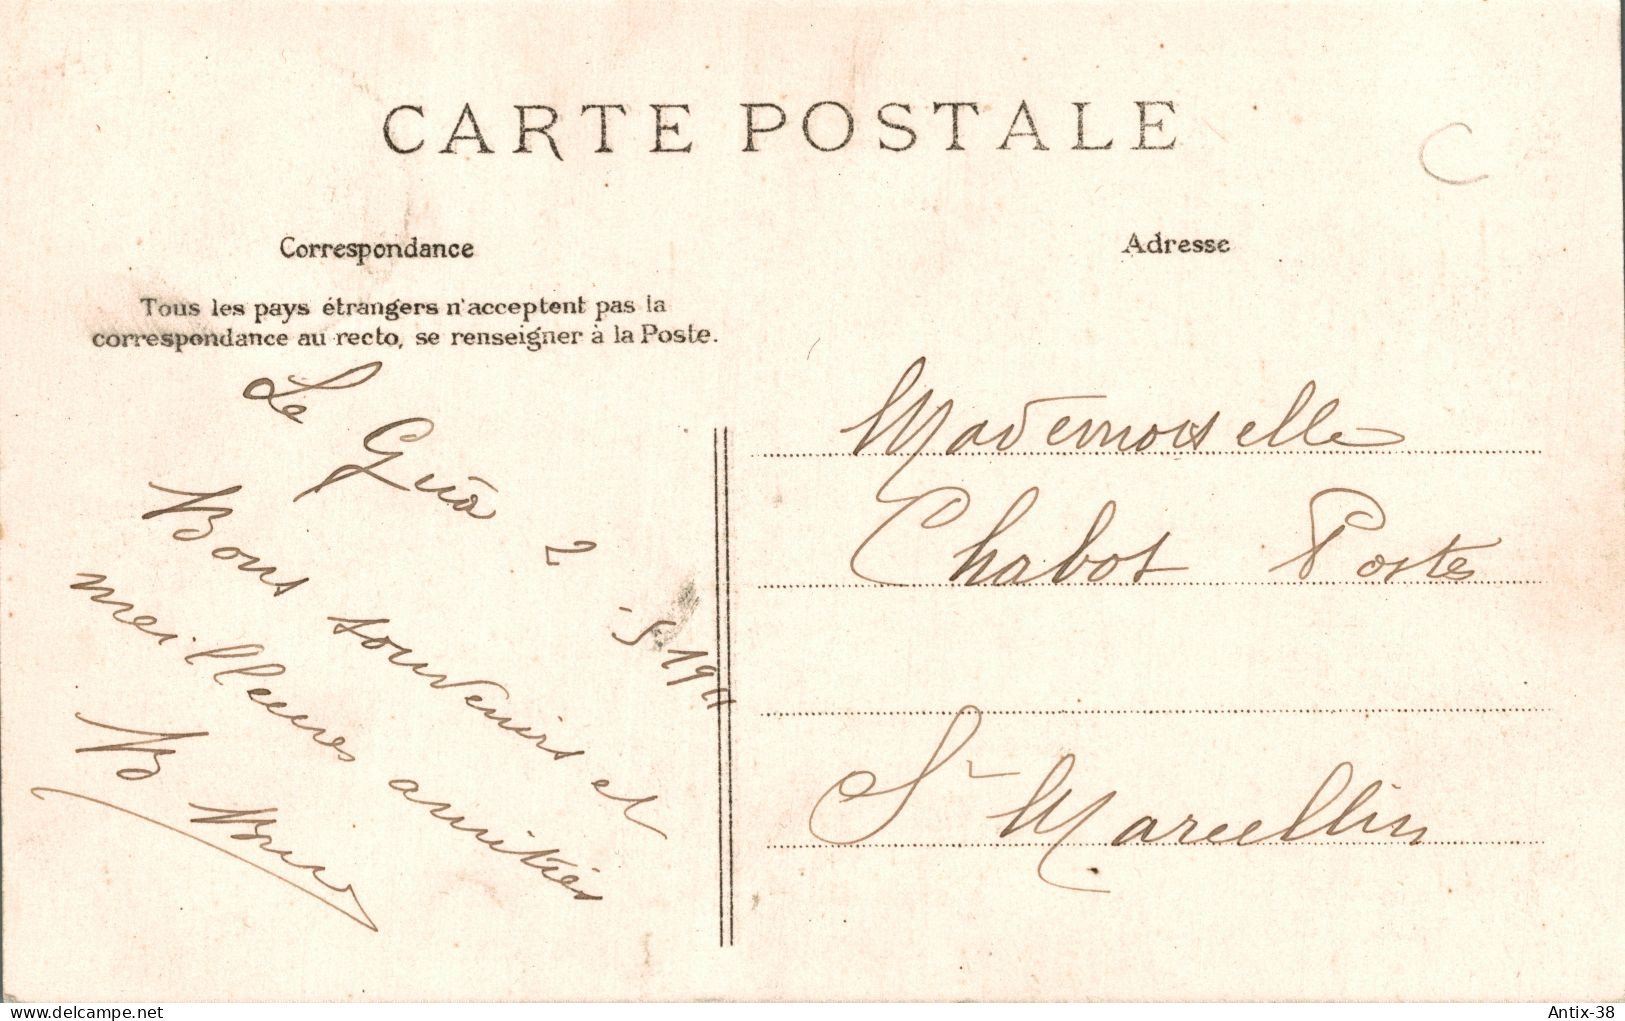 CARTE POSTALE
C
Correspondance
Adresse
Tous les pays étrangers n'acceptent pas la
correspondance au recto, se renseigner à la Poste.
Le Guâ 2 -5 1911
Bons souvenirs et
meilleures amitiés
B
Mademoiselle
Chabot Postes
St Marcellin
www.delcampe.net
Antix-38